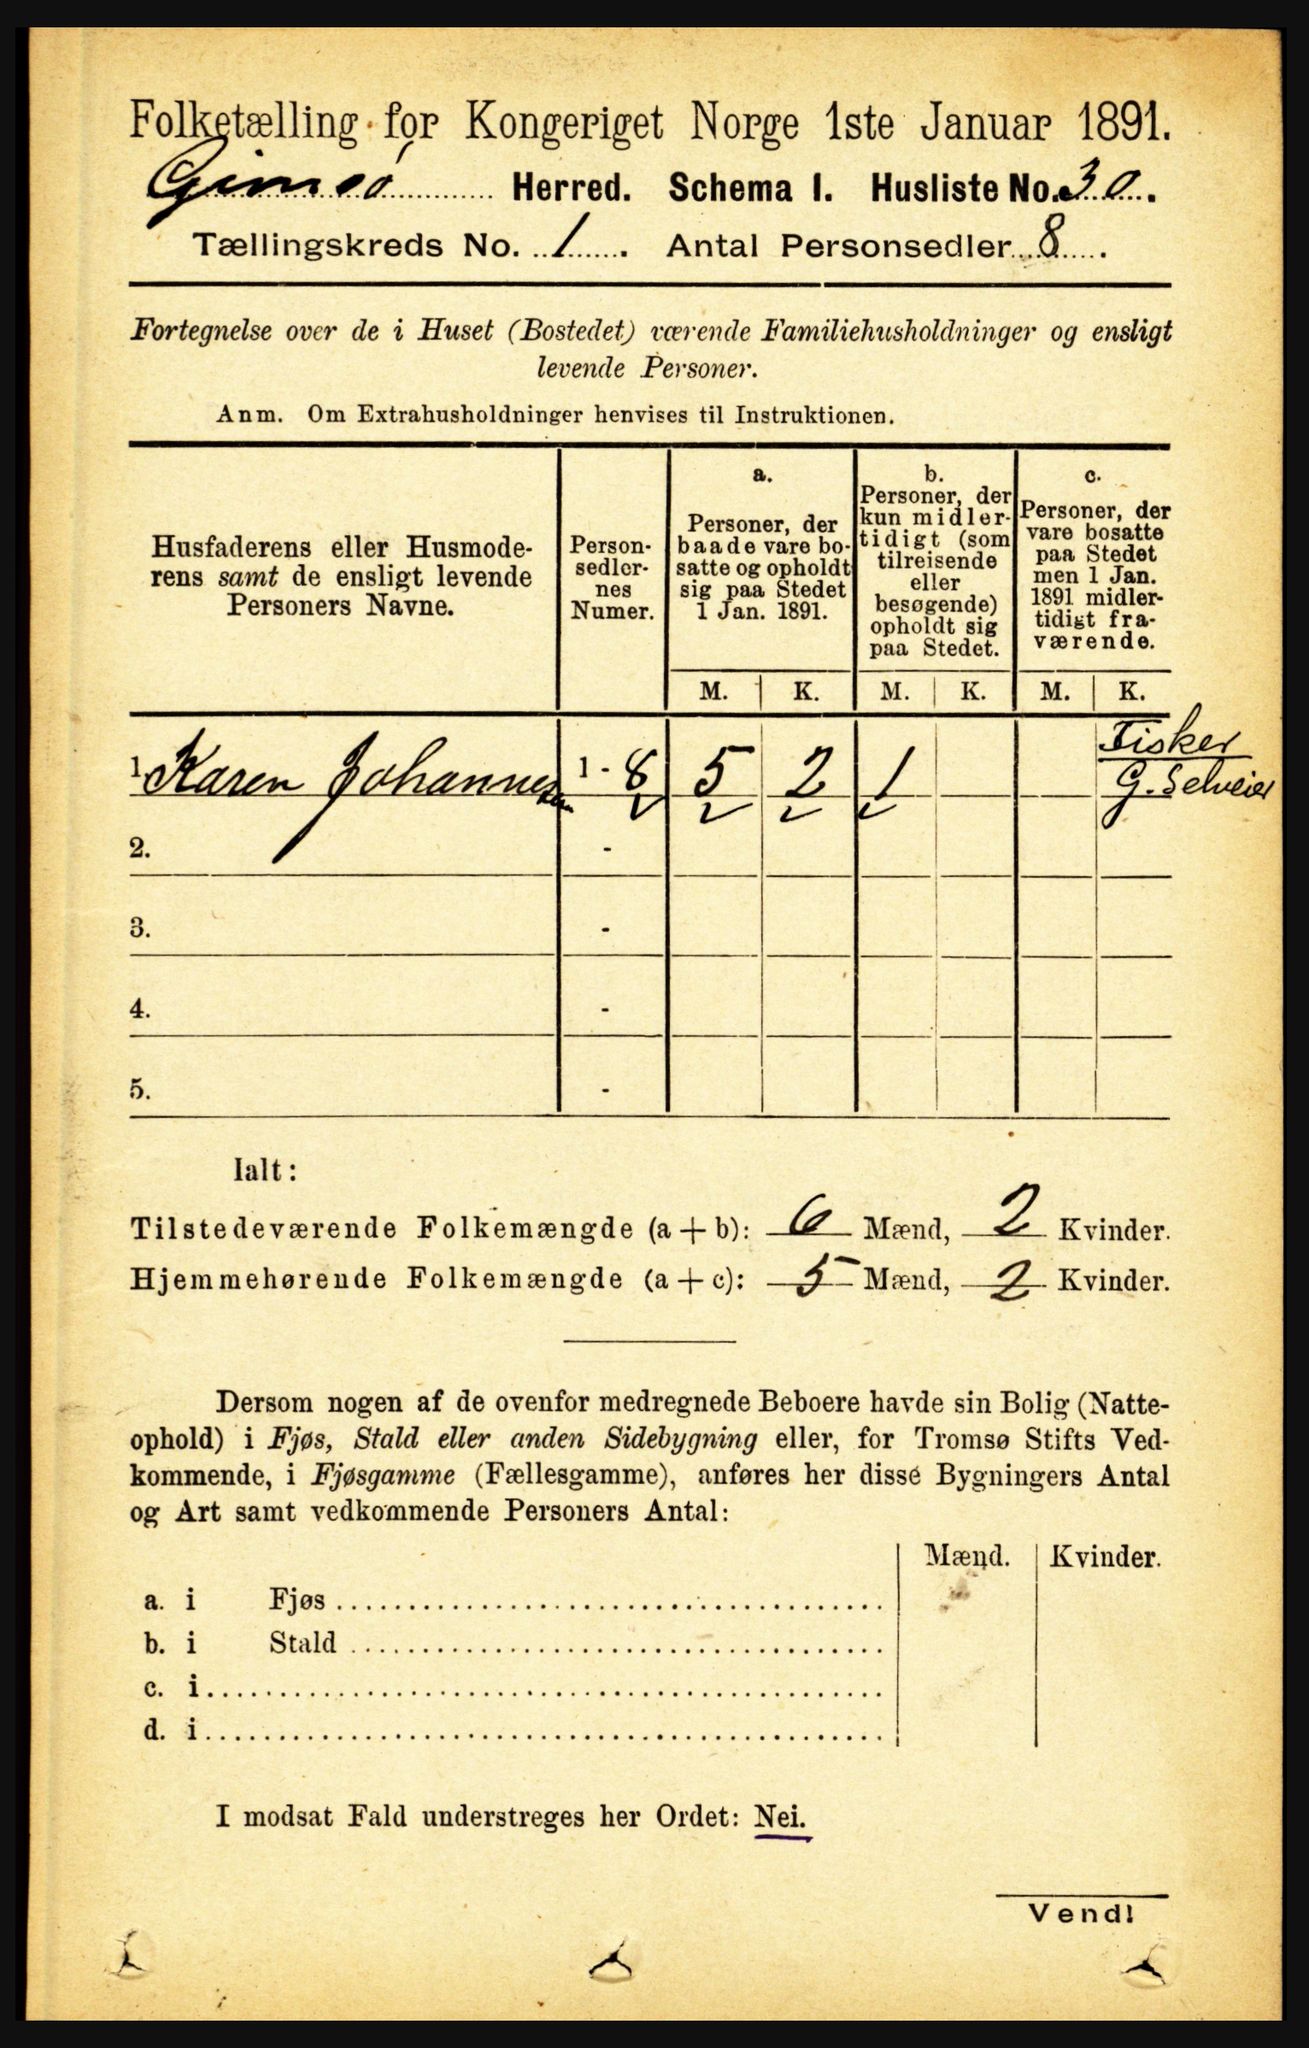 Folketælling for Kongeriget Norge 1ste Januar 1891.
Gimsø Herred. Schema I. Husliste No. 30.
Tællingskreds No. 1. Antal Personsedler 8.
Fortegnelse over de i Huset (Bostedet) værende Familiehusholdninger og ensligt
levende Personer.
Anm. Om Extrahusholdninger henvises til Instruktionen.
Husfaderens eller Husmode-
rens samt de ensligt levende
Personers Navne.
Person-
sedler-
nes
Numer.
a.
Personer, der
baade vare bo-
satte og opholdt
sig paa Stedet
1 Jan. 1891.
b.
Personer, der
kun midler-
tidigt (som
tilreisende
eller
besøgende)
opholdt sig
paa Stedet.
c.
Personer, der
vare bosatte
paa Stedet
men 1 Jan.
1891 midler-
tidigt fra-
værende.
M. K. M. K. M. K.
1. Karen Johannesen 1 - 8 5 2 1 Fisker
G. Selveier
2. -
3. -
4. -
5. -
Ialt:
Tilstedeværende Folkemængde (a + b): 6 Mænd, 2 Kvinder.
Hjemmehørende Folkemængde (a + c): 5 Mænd, 2 Kvinder.
Dersom nogen af de ovenfor medregnede Beboere havde sin Bolig (Natte-
ophold) i Fjøs, Stald eller anden Sidebygning eller, for Tromsø Stifts Ved-
kommende, i Fjøsgamme (Fællesgamme), anføres her disse Bygningers Antal
og Art samt vedkommende Personers Antal:
Mænd. Kvinder.
a. i Fjøs
b. i Stald
c. i
d. i
I modsat Fald understreges her Ordet: Nei.
Vend!